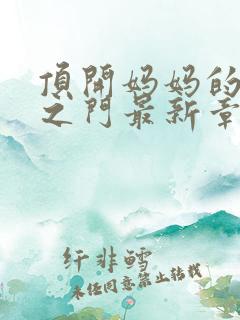 頂開妈妈的
之门最新章
纤非鳕
未经同意禁止转载